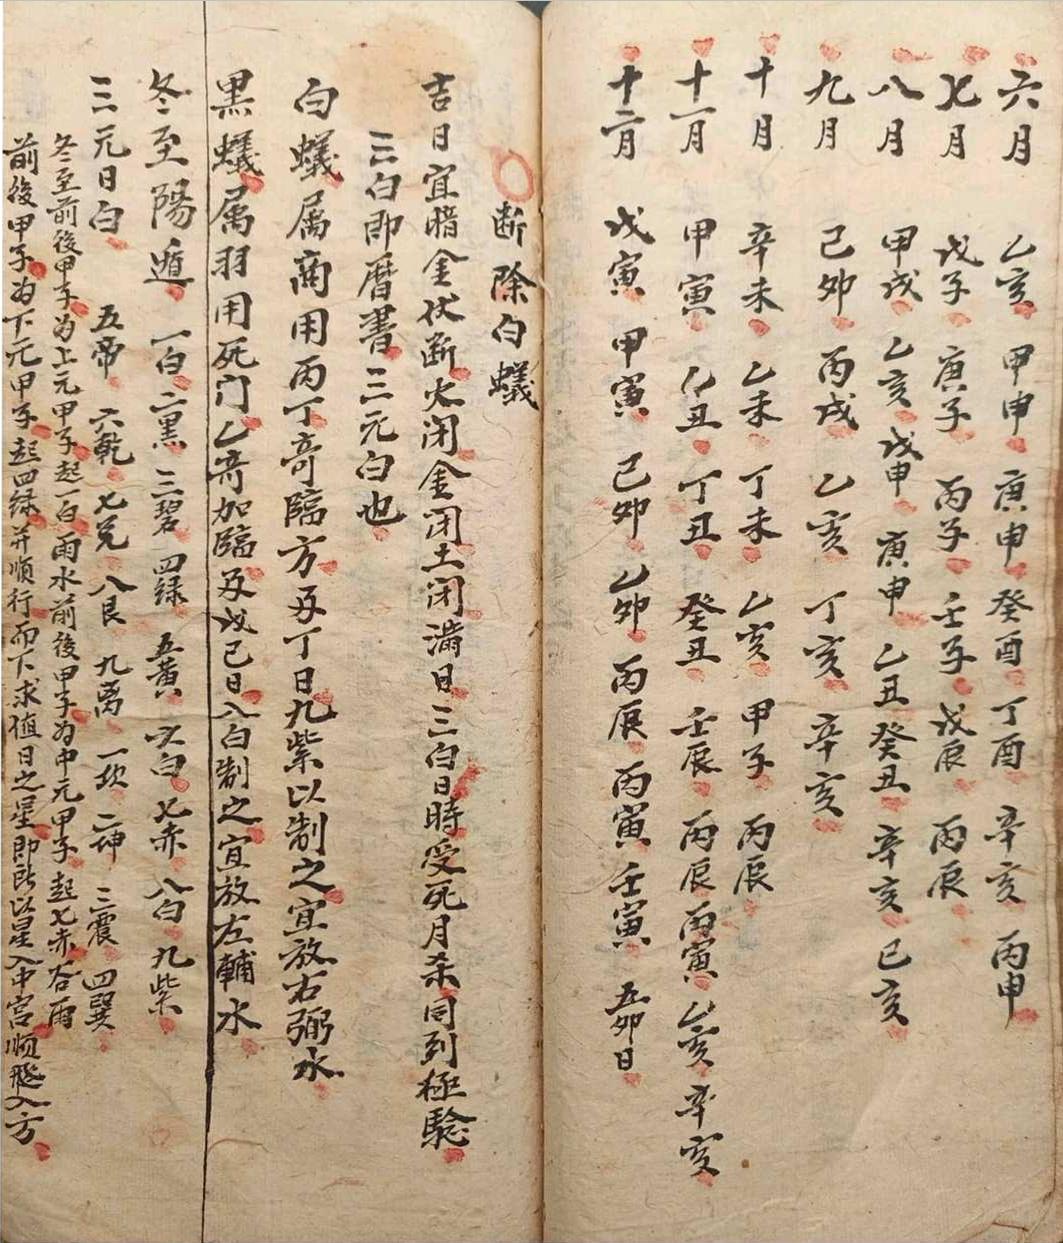 六月 乙亥 甲申 庚申 癸酉 丁酉 辛亥 丙申
七月 戊子 庚子 丙子 壬子 戊辰 丙辰
八月 甲戌 乙亥 戊申 庚申 乙丑 癸丑 辛亥 己亥
九月 己卯 丙戌 乙亥 丁亥 辛亥
十月 辛未 乙未 丁未 乙亥 甲子 丙辰
十一月 甲寅 乙丑 丁丑 癸丑 壬辰 丙辰 丙寅 乙亥 辛亥
十二月 戊寅 甲寅 己卯 乙卯 丙辰 丙寅 壬寅 五卯日
断除白蟻
吉日宜暗金伏断火闭金闭土闭满日三白日時受死月杀同到極驗
三白即曆書三元白也
白蟻属商用丙丁奇臨方及丁日九紫以制之宜放右弼水
黑蟻属羽用死门乙奇加臨及戊己日八白制之宜放左輔水
冬至陽遁 一白二黑 三碧 四绿 五黄 六白 七赤 八白 九紫
三元日白 五帝 六乾 七兑 八艮 九离 一坎 二坤 三震 四巽
冬至前後甲子为上元甲子起一白雨水前後甲子为中元甲子起七赤谷雨
前後甲子为下元甲子起四绿并顺行而下求值日之星即以星入中宫顺飛八方